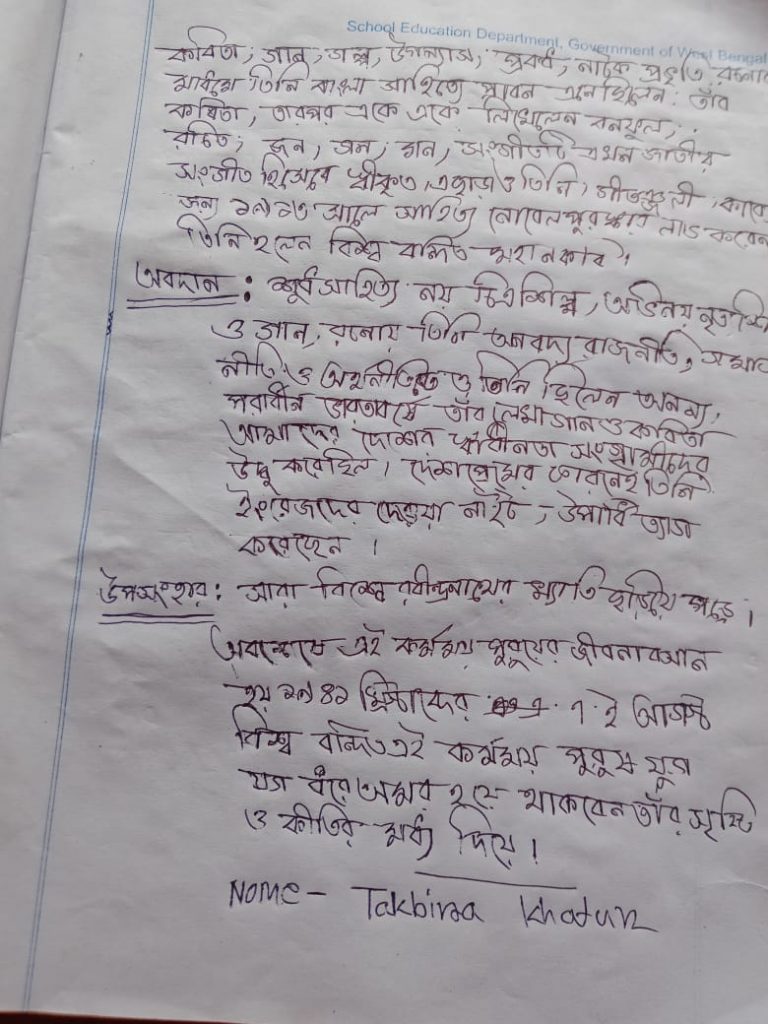 School Education Department, Government of West Bengal
কবিতা, গান, গল্প, উপন্যাস, প্রবন্ধ, নাটক প্রভৃতি রচনার
মাধ্যমে তিনি বাংলা সাহিত্যে প্লাবন এনেছিলেন। তাঁর
কবিতা, তারপর একে একে লিখেলেন বনফুল,
রচিত, জন, গন, মন, সংগীতটি এখন জাতীয়
সংগীত হিসেবে স্বীকৃত, এছাড়াও তিনি, গীতাঞ্জলী, কাব্যে
জন্য ১৯১৩ সালে সাহিত্য নোবেল পুরস্কার লাভ করেন
তিনি হলেন বিশ্ব বন্দিত মহান কবি।
অবদান : শুধু সাহিত্য নয় চিত্রশিল্প, অভিনয় নৃত্যশি
ও গান, রচনায় তিনি অনবদ্য রাজনীতি, সমাজ
নীতি ও অর্থনীতিতে ও তিনি ছিলেন অনন্য,
পরাধীন ভারতবর্ষে তাঁর লেখা গান ও কবিতা
আমাদের দেশের স্বাধীনতা সংগ্রামীদের
উদ্বু করেছিল, দেশপ্রেমের কারনেই তিনি
ইংরেজদের দেওয়া নাইট, উপাধি ত্যাগ
করেছেন ।
উপসংহার : সারা বিশ্বে রবীন্দ্রনাথের খ্যাতি ছড়িয়ে পড়ে।
অবশেষে এই কর্মময় পুরুষের জীবনাবসান
হয় ১৯৪১ খ্রিষ্টাব্দের ৭ ই আগস্ট
বিশ্ব বন্দিত এই কর্মময় পুরুষ যুগ
যুগ ধরে অমর হয়ে থাকবেন তাঁর সৃষ্টি
ও কীর্তির মধ্য দিয়ে।
Nome - Takbira Khatun